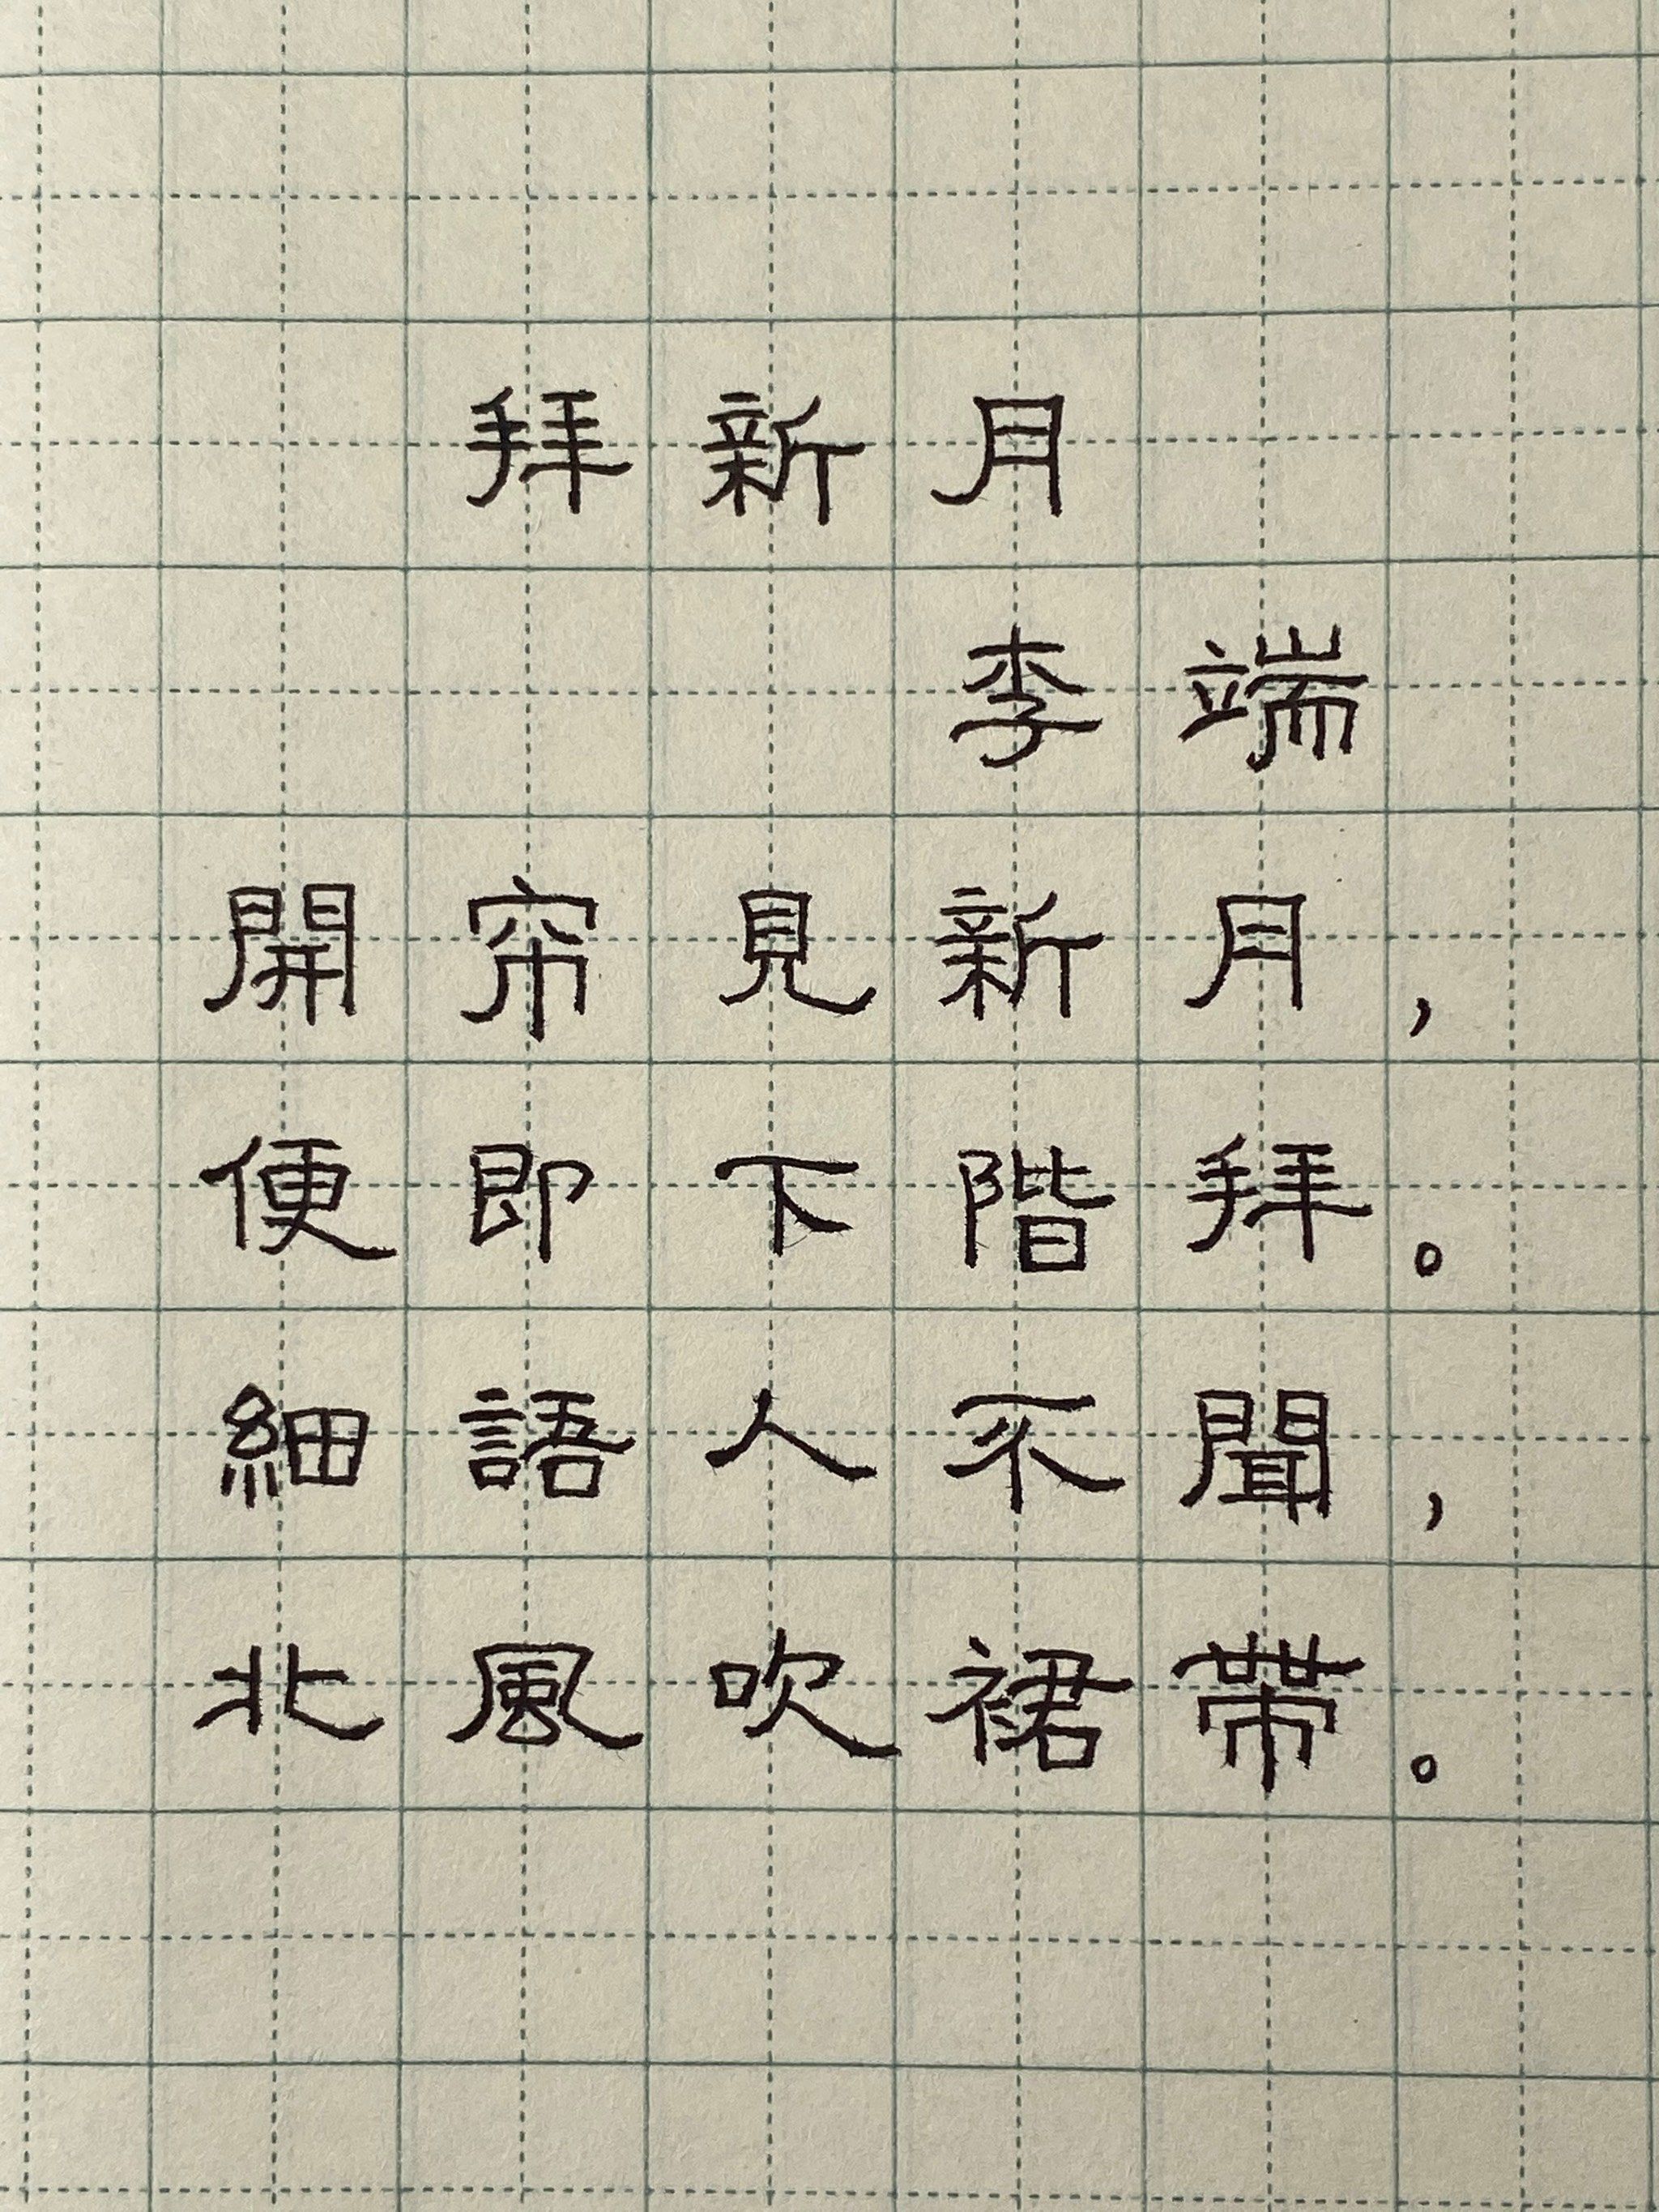 拜新月
李端
開帘見新月，
便即下階拜。
細語人不聞，
北風吹裙帶。